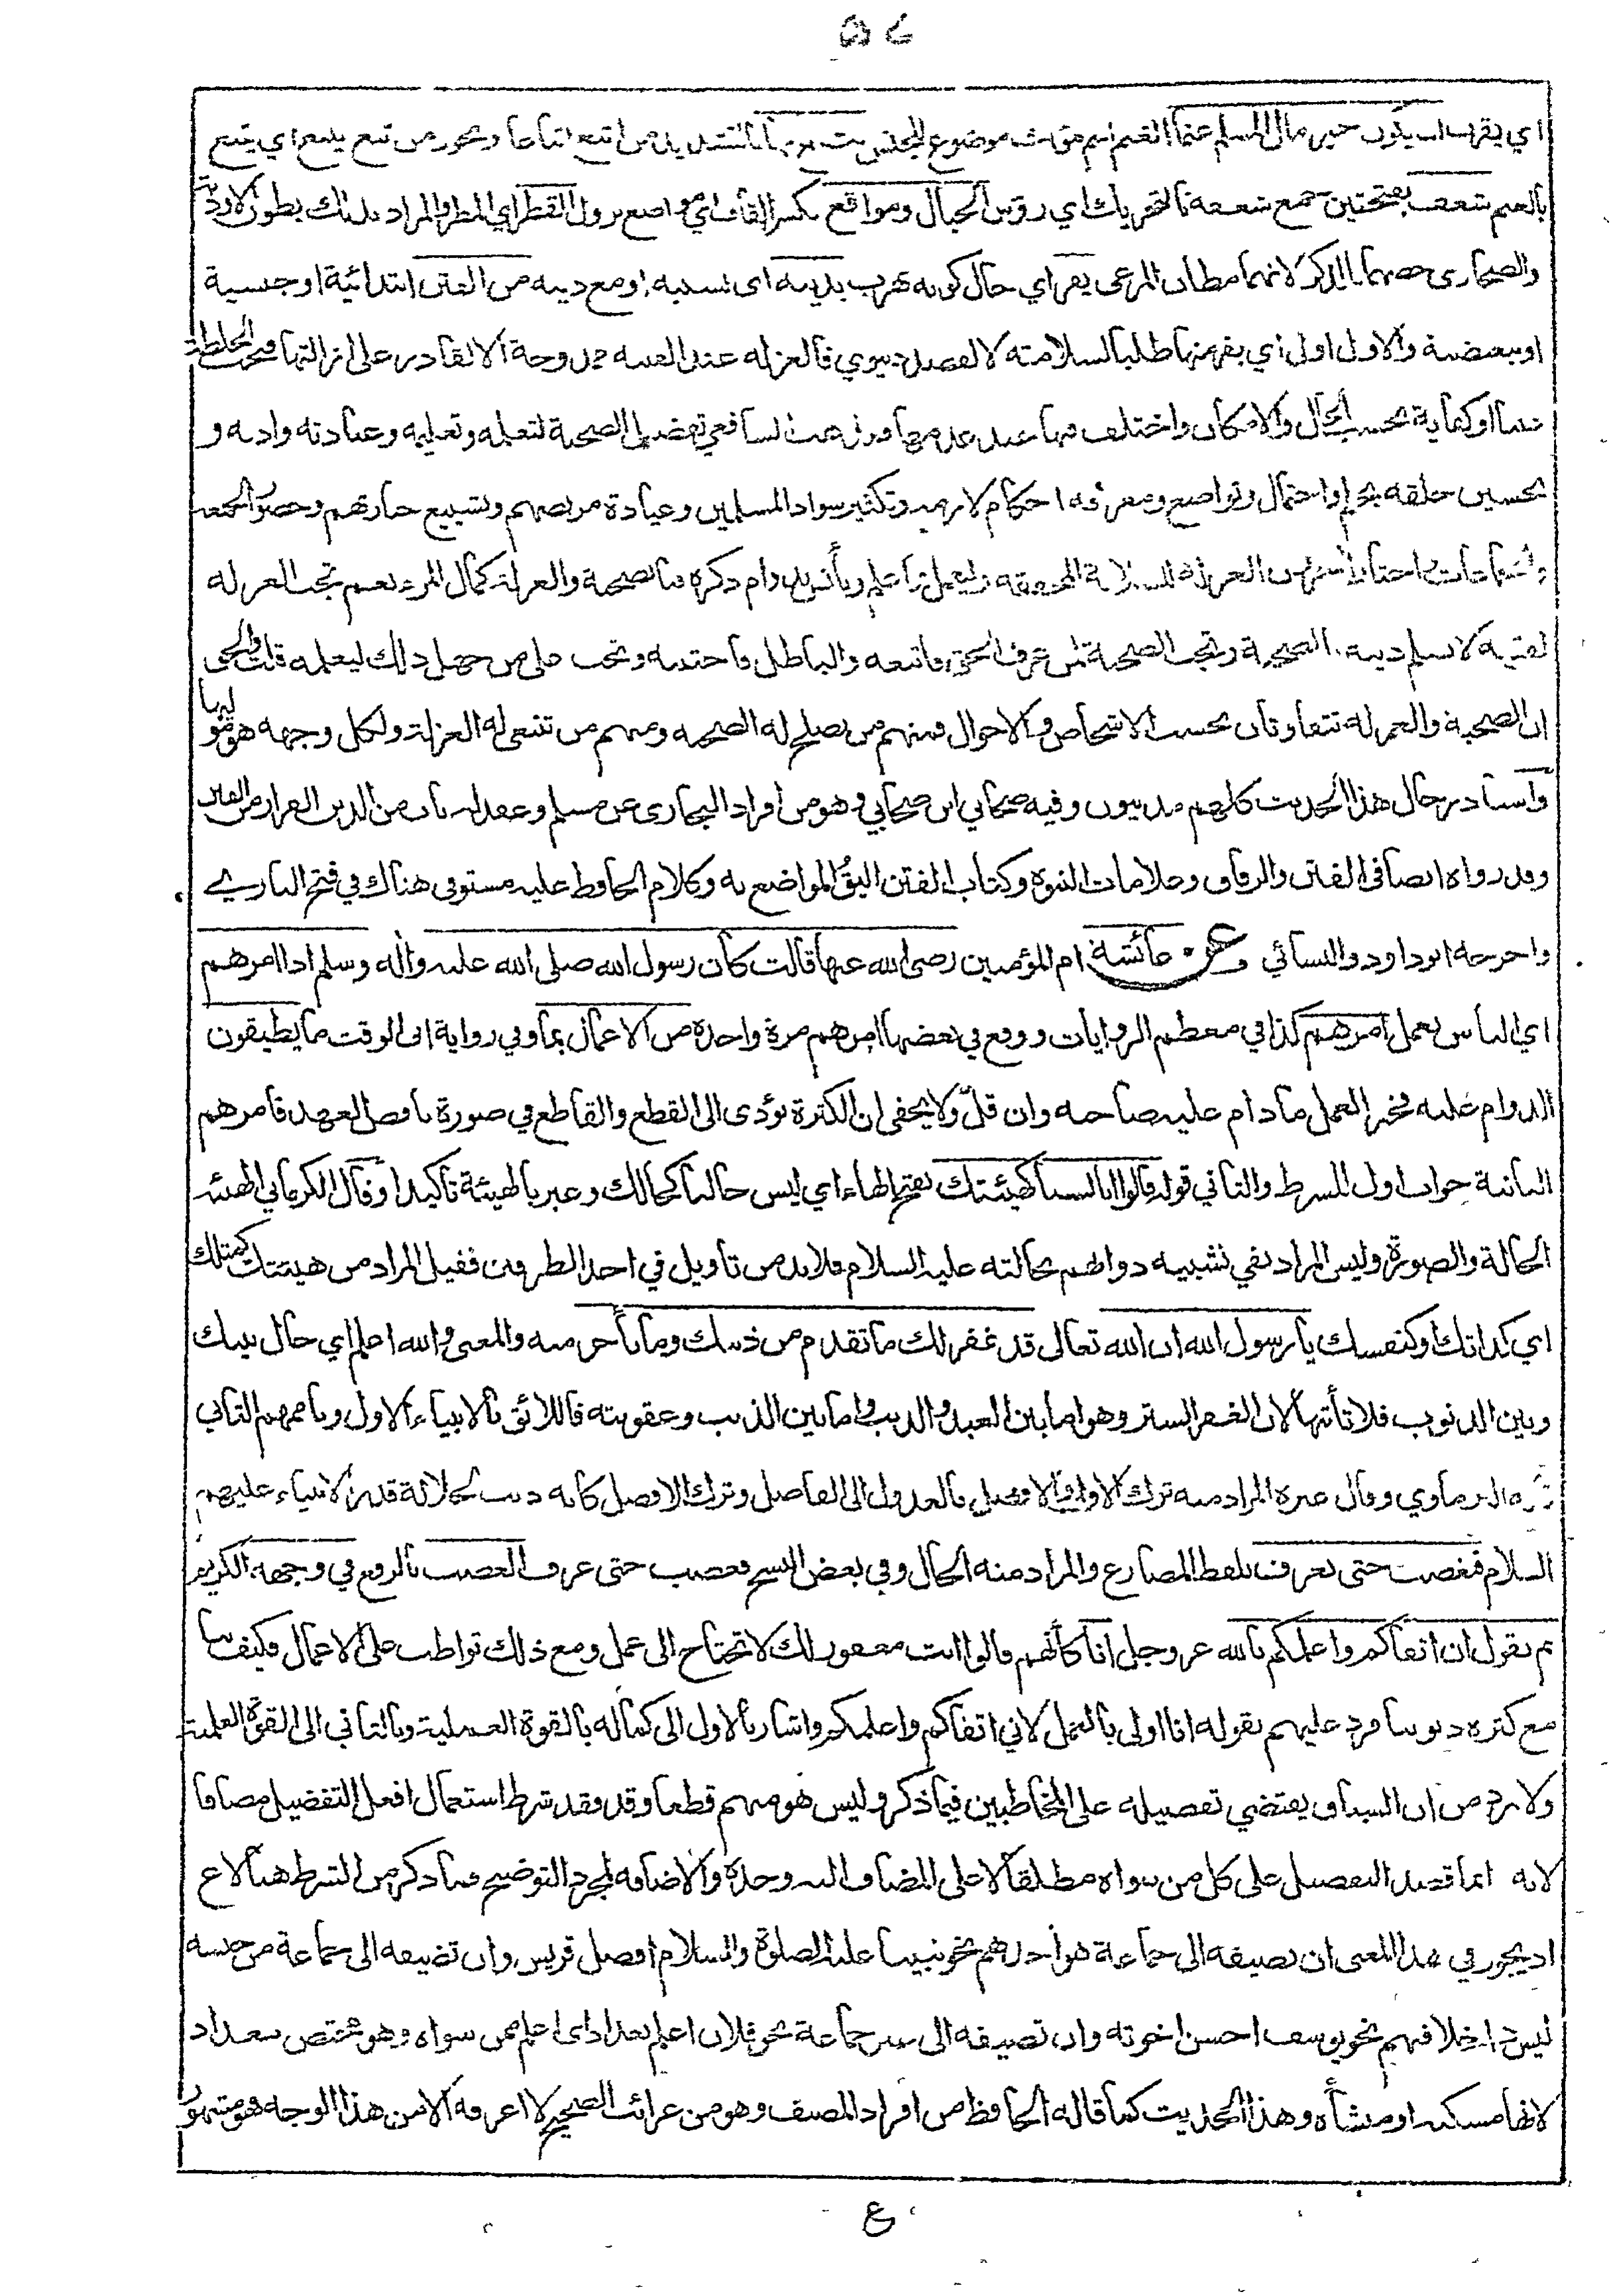 اي يقرب ان يكون خير مال المسلم غنما الغنم اسم مؤنث موضوع للجنس يتبع بها بالتشديد من اتبع اتباعا ويجوز من تبع يتبع اي يتبع
بالغنم شعف بفتحتين جمع شعفة بالتحريك اي رؤس الجبال ومواقع بكسر القاف اي مواضع نزول القطر اي المطر والمراد بذلك بطون الاودية
والصحارى خصهما بالذكر لانهما مظان المرعى يفر اي حال كونه يهرب بدينه اى بسببه او مع دينه من الفتن ابتدائية او جنسية
او تبعيضية والاول اولى اي يفر منها طلبا لسلامته لا لقصد دنيوي فالعزلة عند الفتنة ممدوحة الا لقادر على ازالتها فتجب الخلطة
عينا او كفاية بحسب الحال والامكان واختلف فيها عند عدمها ومذهب الشافعي تفضيل الصحبة لتعلمه وتعليمه وعبادته وادبه و
تحسين خلقه بحلم واحتمال وتواضع ومعرفة احكام لازمة وتكثير سواد المسلمين وعيادة مريضهم وتشييع جنازتهم وحضور الجمعة
والجماعات واختار العزلة للسلامة المحققة وليعمل بما علم ويأنس بدوام ذكره فبالصحبة والعزلة كمال المرء نعم تجب العزلة
لفقيه لا يسلم دينه بالصحبة وتجب الصحبة لمن عرف الحق فاتبعه والباطل فاجتنبه وتجب على من جهل ذلك ليعلمه قلت والحق
ان الصحبة والعزلة تتفاوتان بحسب الاشخاص والاحوال فمنهم من يصلح له الصحبة ومنهم من تنبغي له العزلة ولكل وجهة هو موليها
واسناد رجال هذا الحديث كلهم مدنيون وفيه صحابي ابن صحابي وهو من افراد البخارى عن مسلم وعقد له باب من الدين الفرار من الفتن
وقد رواه ايضا في الفتن والرقاق وعلامات النبوة وكتاب الفتن اليق المواضع به وكلام الحافظ عليه مستوفى هناك في فتح الباري
واخرجه ابو داود والنسائي وعن عائشة ام المؤمنين رضي الله عنها قالت كان رسول الله صلى الله عليه وآله وسلم اذا امرهم
اي الناس بعمل امرهم كذا في معظم الروايات ووقع في بعضها امرهم مرة واحدة من الاعمال بما وفي رواية ابي الوقت ما يطيقون
الدوام عليه فخير العمل ما دام عليه صاحبه وان قلّ ولا يخفى ان الكثرة تؤدى الى القطع والقاطع في صورة ناقص العهد فامرهم
الثانية جواب اول للشرط والثاني قوله قالوا انا لسنا كهيئتك بفتح الهاء اي ليس حالنا كحالك وعبر بالهيئة تأكيدا وقال الكرماني الهيئة
الحالة والصورة وليس المراد نفي تشبيه ذواتهم بحالته عليه السلام فلا بد من تأويل في احد الطرفين فقيل المراد من هيئتك كمثلك
اي كذاتك او كنفسك يا رسول الله ان الله تعالى قد غفر لك ما تقدم من ذنبك وما تأخر منه والمعنى والله اعلم اي حال بينك
وبين الذنوب فلا تأتيها لان الغفر الستر وهو اما بين العبد والذنب واما بين الذنب وعقوبته فاللائق بالانبياء الاول وباممهم الثاني
البرماوي وقال غيره المراد منه ترك الاولى والافضل بالعدول الى الفاضل وترك الافضل كانه ذنب لجلالة قدر الانبياء عليهم
السلام فغضب حتى يعرف بلفظ المضارع والمراد منه الحال وفي بعض النسخ فغضب حتى عرف الغضب بالرفع في وجهه الكريم
ثم يقول ان اتقاكم واعلمكم بالله عز وجل انا كأنهم قالوا انت مغفور لك لا تحتاج الى عمل ومع ذلك تواظب على الاعمال فكيف بنا
مع كثرة ذنوبنا فرد عليهم بقوله انا اولى بالعمل لاني اتقاكم واعلمكم واشار بالاول الى كماله بالقوة العملية وبالثاني الى القوة العلمية
ولا يرد من ان السياق يقتضي تفضيله على المخاطبين فيما ذكر وليس هو منهم قطعا وقد فقد شرط استعمال افعل التفضيل مضافا
لانه انما قصد التفضيل على كل من سواه مطلقا لا على المضاف اليه وحده والاضافة لمجرد التوضيح فما ذكر من الشرط هنا لاغ
اذ يجوز في هذا المعنى ان تضيفه الى جماعة هو احدهم نحو نبينا عليه الصلوة والسلام افضل قريش وان تضيفه الى جماعة من جنسه
ليس داخلا فيهم نحو يوسف احسن اخوته وان تضيفه الى غير جماعة نحو فلان اعلم بغداد اى اعلم ممن سواه وهو مختص ببغداد
لانها مسكنه او منشأه وهذا الحديث كما قاله الحافظ من افراد المصنف وهو من غرائب الصحيح لا اعرفه الا من هذا الوجه فهو مشهور
ع